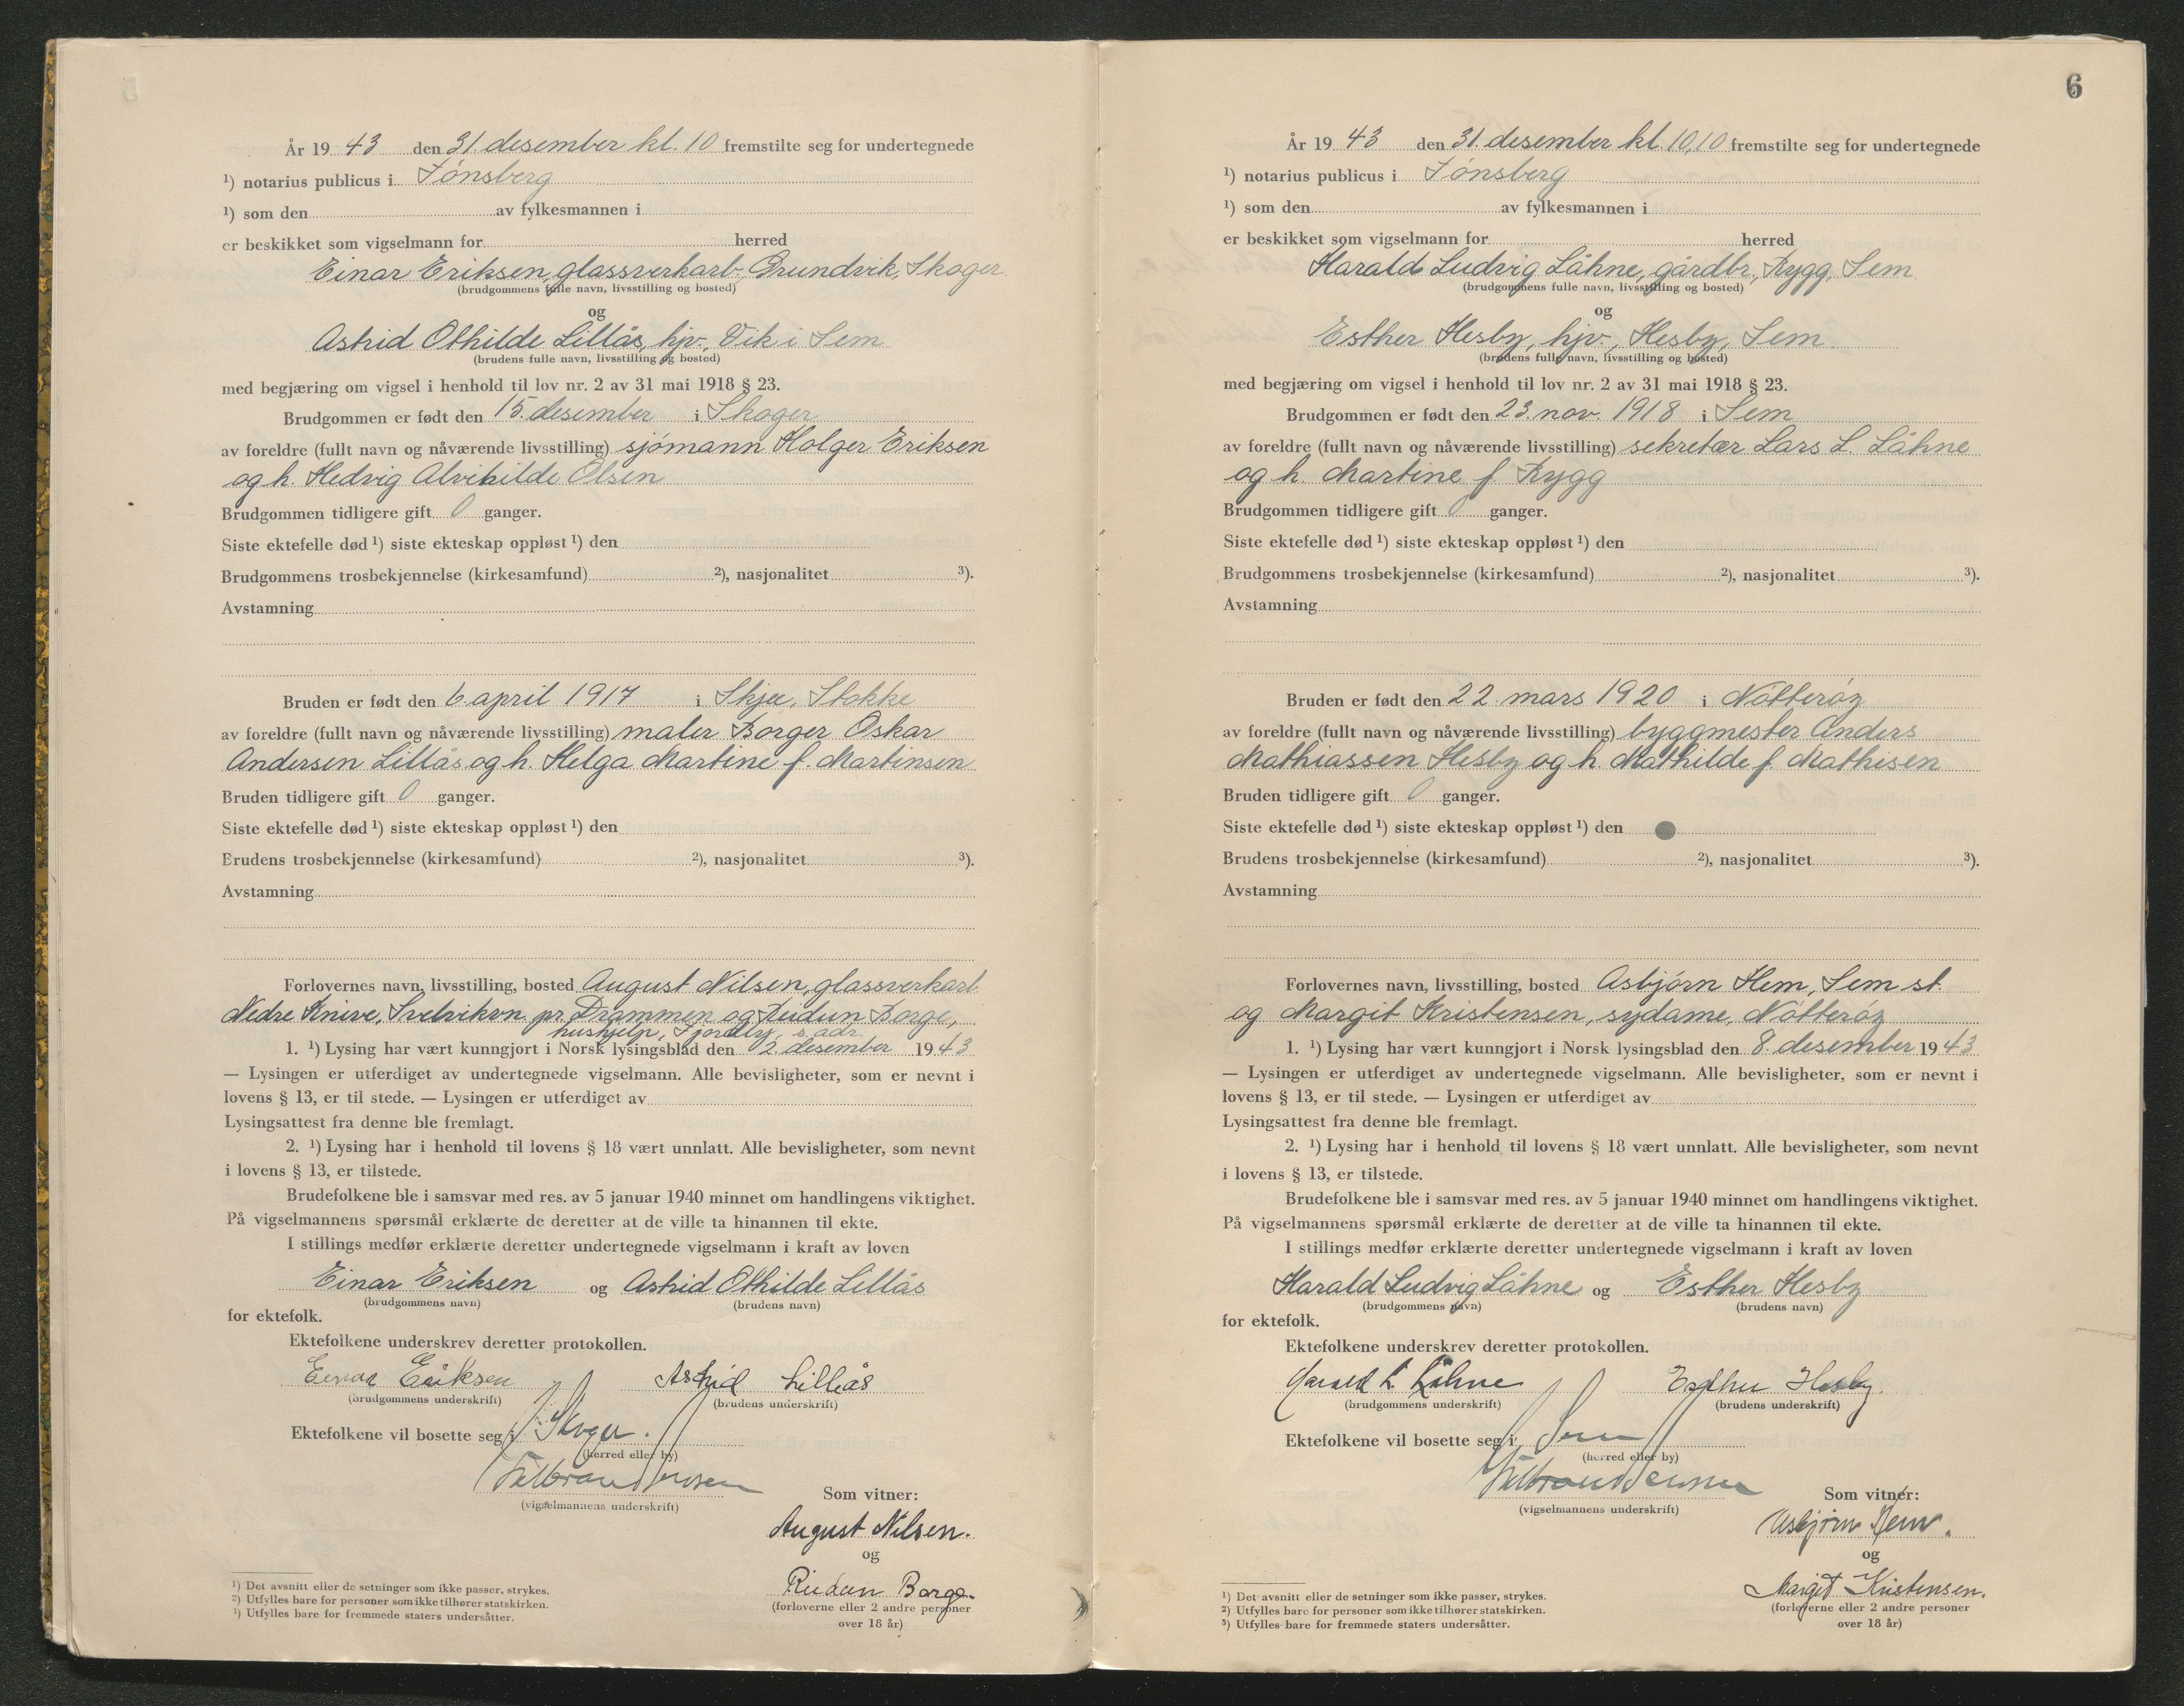 År 19 43 den 31. desember kl. 10 fremstilte seg for undertegnede
¹) notarius publicus i Tönsberg
¹) som den av fylkesmannen i
er beskikket som vigselmann for herred
Einar Eriksen, glassverkarb., Grundvik, Skoger
(brudgommens fulle navn, livsstilling og bosted)
og
Astrid Othilde Lillås, hjv., Vik i Sem
(brudens fulle navn, livsstilling og bosted)
med begjæring om vigsel i henhold til lov nr. 2 av 31 mai 1918 § 23.
Brudgommen er født den 15. desember i Skoger
av foreldre (fullt navn og nåværende livsstilling) sjömann Holger Eriksen
og h. Hedvig Alvihilde Olsen
Brudgommen tidligere gift 0 ganger.
Siste ektefelle død ¹) siste ekteskap oppløst ¹) den
Brudgommens trosbekjennelse (kirkesamfund) ²), nasjonalitet ³).
Avstamning
Bruden er født den 6. april 1917 i Skjee, Stokke
av foreldre (fullt navn og nåværende livsstilling) maler Borger Oskar
Andersen Lillås og h. Helga Martine f. Martinsen
Bruden tidligere gift 0 ganger.
Siste ektefelle død ¹) siste ekteskap oppløst ¹) den
Brudens trosbekjennelse (kirkesamfund) ²), nasjonalitet ³).
Avstamning
Forlovernes navn, livsstilling, bosted August Nilsen, glassverkarb.
Nedre Knive, Svelvikvn. pr. Drammen og Reidun Borge,
hushjelp, s. adr.
1. ¹) Lysing har vært kunngjort i Norsk lysingsblad den desember 19 43
— Lysingen er utferdiget av undertegnede vigselmann. Alle bevisligheter, som er nevnt i
lovens § 13, er til stede. — Lysingen er utferdiget av
Lysingsattest fra denne ble fremlagt.
2. ¹) Lysing har i henhold til lovens § 18 vært unnlatt. Alle bevisligheter, som nevnt
i lovens § 13, er tilstede.
Brudefolkene ble i samsvar med res. av 5 januar 1940 minnet om handlingens viktighet.
På vigselmannens spørsmål erklærte de deretter at de ville ta hinannen til ekte.
I stillings medfør erklærte deretter undertegnede vigselmann i kraft av loven
Einar Eriksen og Astrid Othilde Lillås
(brudgommens navn) (brudens navn)
for ektefolk.
Ektefolkene underskrev deretter protokollen.
Einar Eriksen Astrid Lillås
(brudgommens underskrift) (brudens underskrift)
Ektefolkene vil bosette seg i Skoger.
(herred eller by)
(vigselmannens underskrift)
Som vitner:
August Nilsen.
og
Reidun Borge.
(forloverne eller 2 andre personer
over 18 år)
¹) Det avsnitt eller de setninger som ikke passer, strykes.
²) Utfylles bare for personer som ikke tilhører statskirken.
³) Utfylles bare for fremmede staters undersåtter.
6
År 19 43 den 31. desember kl. 10,10 fremstilte seg for undertegnede
¹) notarius publicus i Tönsberg
¹) som den av fylkesmannen i
er beskikket som vigselmann for herred
Harald Ludvig Låhne, gårdbr., Rygg, Sem
(brudgommens fulle navn, livsstilling og bosted)
og
Esther Hesby, hjv., Hesby, Sem
(brudens fulle navn, livsstilling og bosted)
med begjæring om vigsel i henhold til lov nr. 2 av 31 mai 1918 § 23.
Brudgommen er født den 23. nov. 1918 i Sem
av foreldre (fullt navn og nåværende livsstilling) sekretær Lars L. Låhne
og h. Martine f. Rygg
Brudgommen tidligere gift 0 ganger.
Siste ektefelle død ¹) siste ekteskap oppløst ¹) den
Brudgommens trosbekjennelse (kirkesamfund) ²), nasjonalitet ³).
Avstamning
Bruden er født den 22. mars 1920 i Nötteröy
av foreldre (fullt navn og nåværende livsstilling) byggmester Anders
Mathiassen Hesby og h. Mathilde f. Mathisen
Bruden tidligere gift 0 ganger.
Siste ektefelle død ¹) siste ekteskap oppløst ¹) den
Brudens trosbekjennelse (kirkesamfund) ²), nasjonalitet ³).
Avstamning
Forlovernes navn, livsstilling, bosted Asbjörn Hem, Sem st.
og Margit Kristensen, sydame, Nötteröy
1. ¹) Lysing har vært kunngjort i Norsk lysingsblad den 8. desember 19 43
— Lysingen er utferdiget av undertegnede vigselmann. Alle bevisligheter, som er nevnt i
lovens § 13, er til stede. — Lysingen er utferdiget av
Lysingsattest fra denne ble fremlagt.
2. ¹) Lysing har i henhold til lovens § 18 vært unnlatt. Alle bevisligheter, som nevnt
i lovens § 13, er tilstede.
Brudefolkene ble i samsvar med res. av 5 januar 1940 minnet om handlingens viktighet.
På vigselmannens spørsmål erklærte de deretter at de ville ta hinannen til ekte.
I stillings medfør erklærte deretter undertegnede vigselmann i kraft av loven
Harald Ludvig Låhne og Esther Hesby
(brudgommens navn) (brudens navn)
for ektefolk.
Ektefolkene underskrev deretter protokollen.
Harald L. Låhne Esther Hesby.
(brudgommens underskrift) (brudens underskrift)
Ektefolkene vil bosette seg i Sem
(herred eller by)
(vigselmannens underskrift)
Som vitner:
Asbjörn Hem.
og
Margit Kristensen.
(forloverne eller 2 andre personer
over 18 år)
¹) Det avsnitt eller de setninger som ikke passer, strykes.
²) Utfylles bare for personer som ikke tilhører statskirken.
³) Utfylles bare for fremmede staters undersåtter.